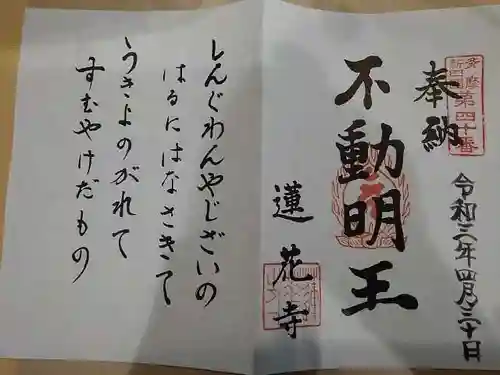 奉納
多摩
新四国
第四十番
令和二年四月二十日
不動明王
蓮花寺
しんぐわんやじざいの
はるにはなさきて
うきよのがれて
すむやけだもの